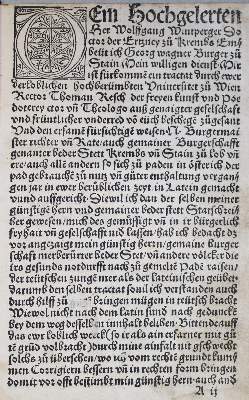 Dem Hochgelerten
Her Wolffgang Winperger Do
ctor der Ertzney zu Krembs Emb
heut ich Georg wagner Burger zu
Stain Mein willigen dienst Mir
ist fürkomē ein tractat durch ewer
der loblichen hochberümbten Uniuersitet zu Wien
Rector Thoman Resch der freyen kunst vnd Do
ctorey ctō vñ Theologo auß geneigter gesellschafft
vnd früntlicher vnderred vō euch beschege zůgesant
Vnd den ersamē fürsichtigē weisen N. Burgermai
ster richter vñ Rate auch gemainer Burgerschafft
gemaner beder Stet Krembs vñ Stain zů lob vñ
ere auch allē andern so sich zů paden in österrich der
pad gebrauchē zů nutz vñ gůter enthaltung vergang
gen jar in ewer berüblichen zeyt in Latein gemacht
vnnd auffgericht Diewil ich dan der selben meiner
günstigē hern vnd gemainer beder stet Statschrei
ber gewesen
fryhait vñ gesellschafft vnd lassen hab ich bedacht dz
vor angezaigt mein günstig hern gemaine burger
schafft merberürter beder Stet vñ andere völcker die
iro gesinds notdurfft nach zů gemelte Padē raisen
der teütschen zunge mer als der lateinischen geübet
darumb den selben tractat souil ich verstanden auch
durch hilff zů bringen mügen in teütsch bracht
Wiewol nicht nach dem latin sund nach gedunckē
bey dem weg desselben innhalt beliben Bittend auff
das ewr loblich weeck so ir als ain erfarner mit gů
te grūd volbracht durch mine ainfalt nit geschwecht
solches zů übersehen wo uch vom rechtē grundt kum̄
men Corrigiern bessern vñ in rechten form bringen
domit vor offt bestimbt min günstig hern auch and
A ij